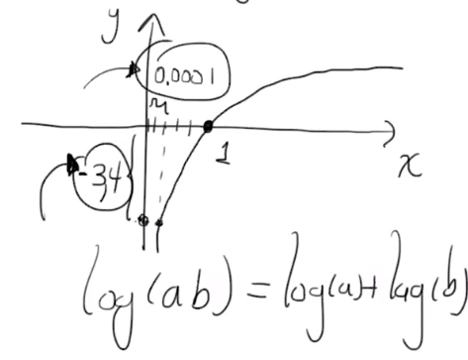 y
0.0001
1
x
-3,4
log(ab) = log(a)+ log(b)